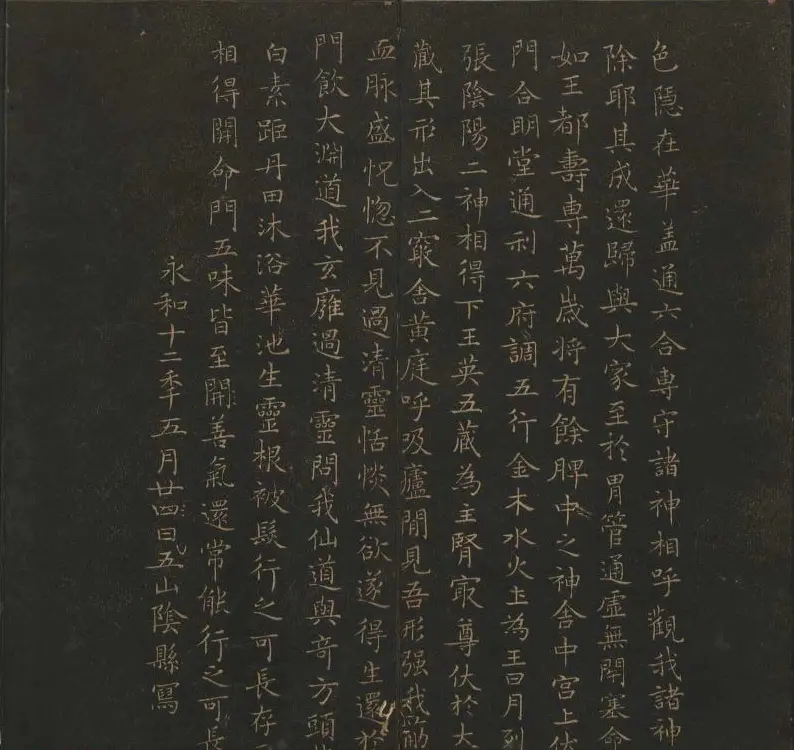 色隱在華蓋通六合專守諸神相呼觀我諸神
除耶其成還歸與大家至於胃管通虛無閉塞命
如王都壽專萬歲將有餘脾中之神舍中宮上伏
門合明堂通利六府調五行金木水火土為王日月列
張陰陽二神相得下王英五藏為主腎㝡尊伏於大
藏其形出入二竅舍黃庭呼吸廬間見吾形强我筋
血脉盛怳惚不見過清靈恬惔無欲遂得生還於
門飲大淵道我玄廱過清靈問我仙道與奇方頭
白素距丹田沐浴華池生靈根被髮行之可長存
相得開命門五味皆至開善氣還常能行之可長
永和十二年五月廿四日五山陰縣寫